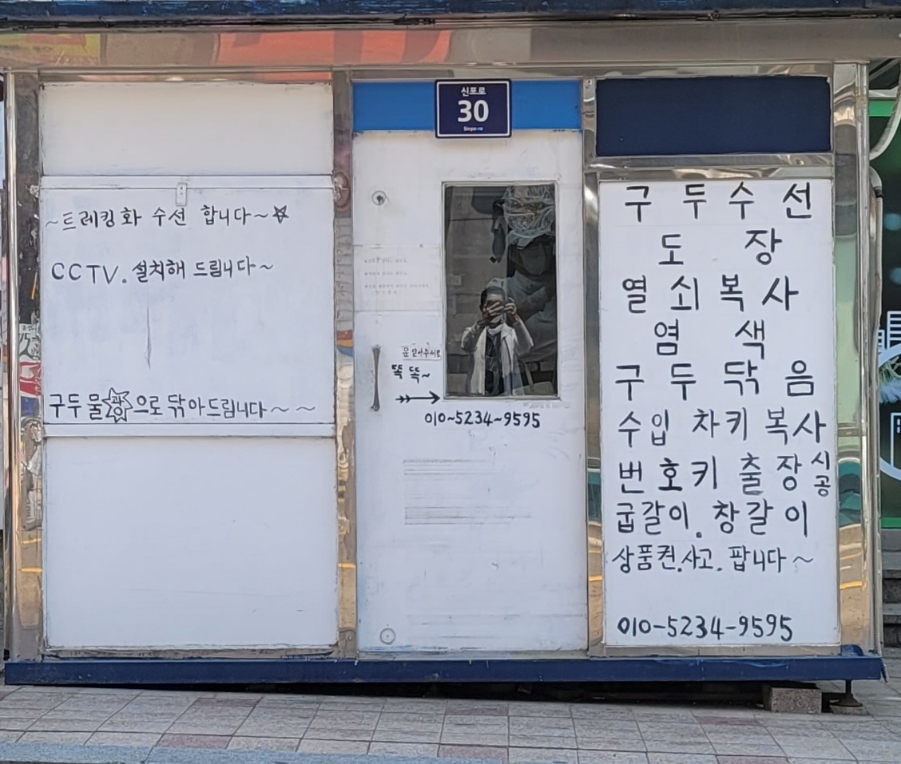 신포로
30
Sinpo-ro
~트레킹화 수선 합니다~
CCTV. 설치해 드립니다~
구두 물광으로 닦아드립니다~ ~
문 열어주세요
똑 똑~
010-5234-9595
구두수선
도 장
열쇠복사
염 색
구두닦음
수입 차키 복사
번호키 출장시공
굽갈이. 창갈이
상품권.사고. 팝니다~
010-5234-9595